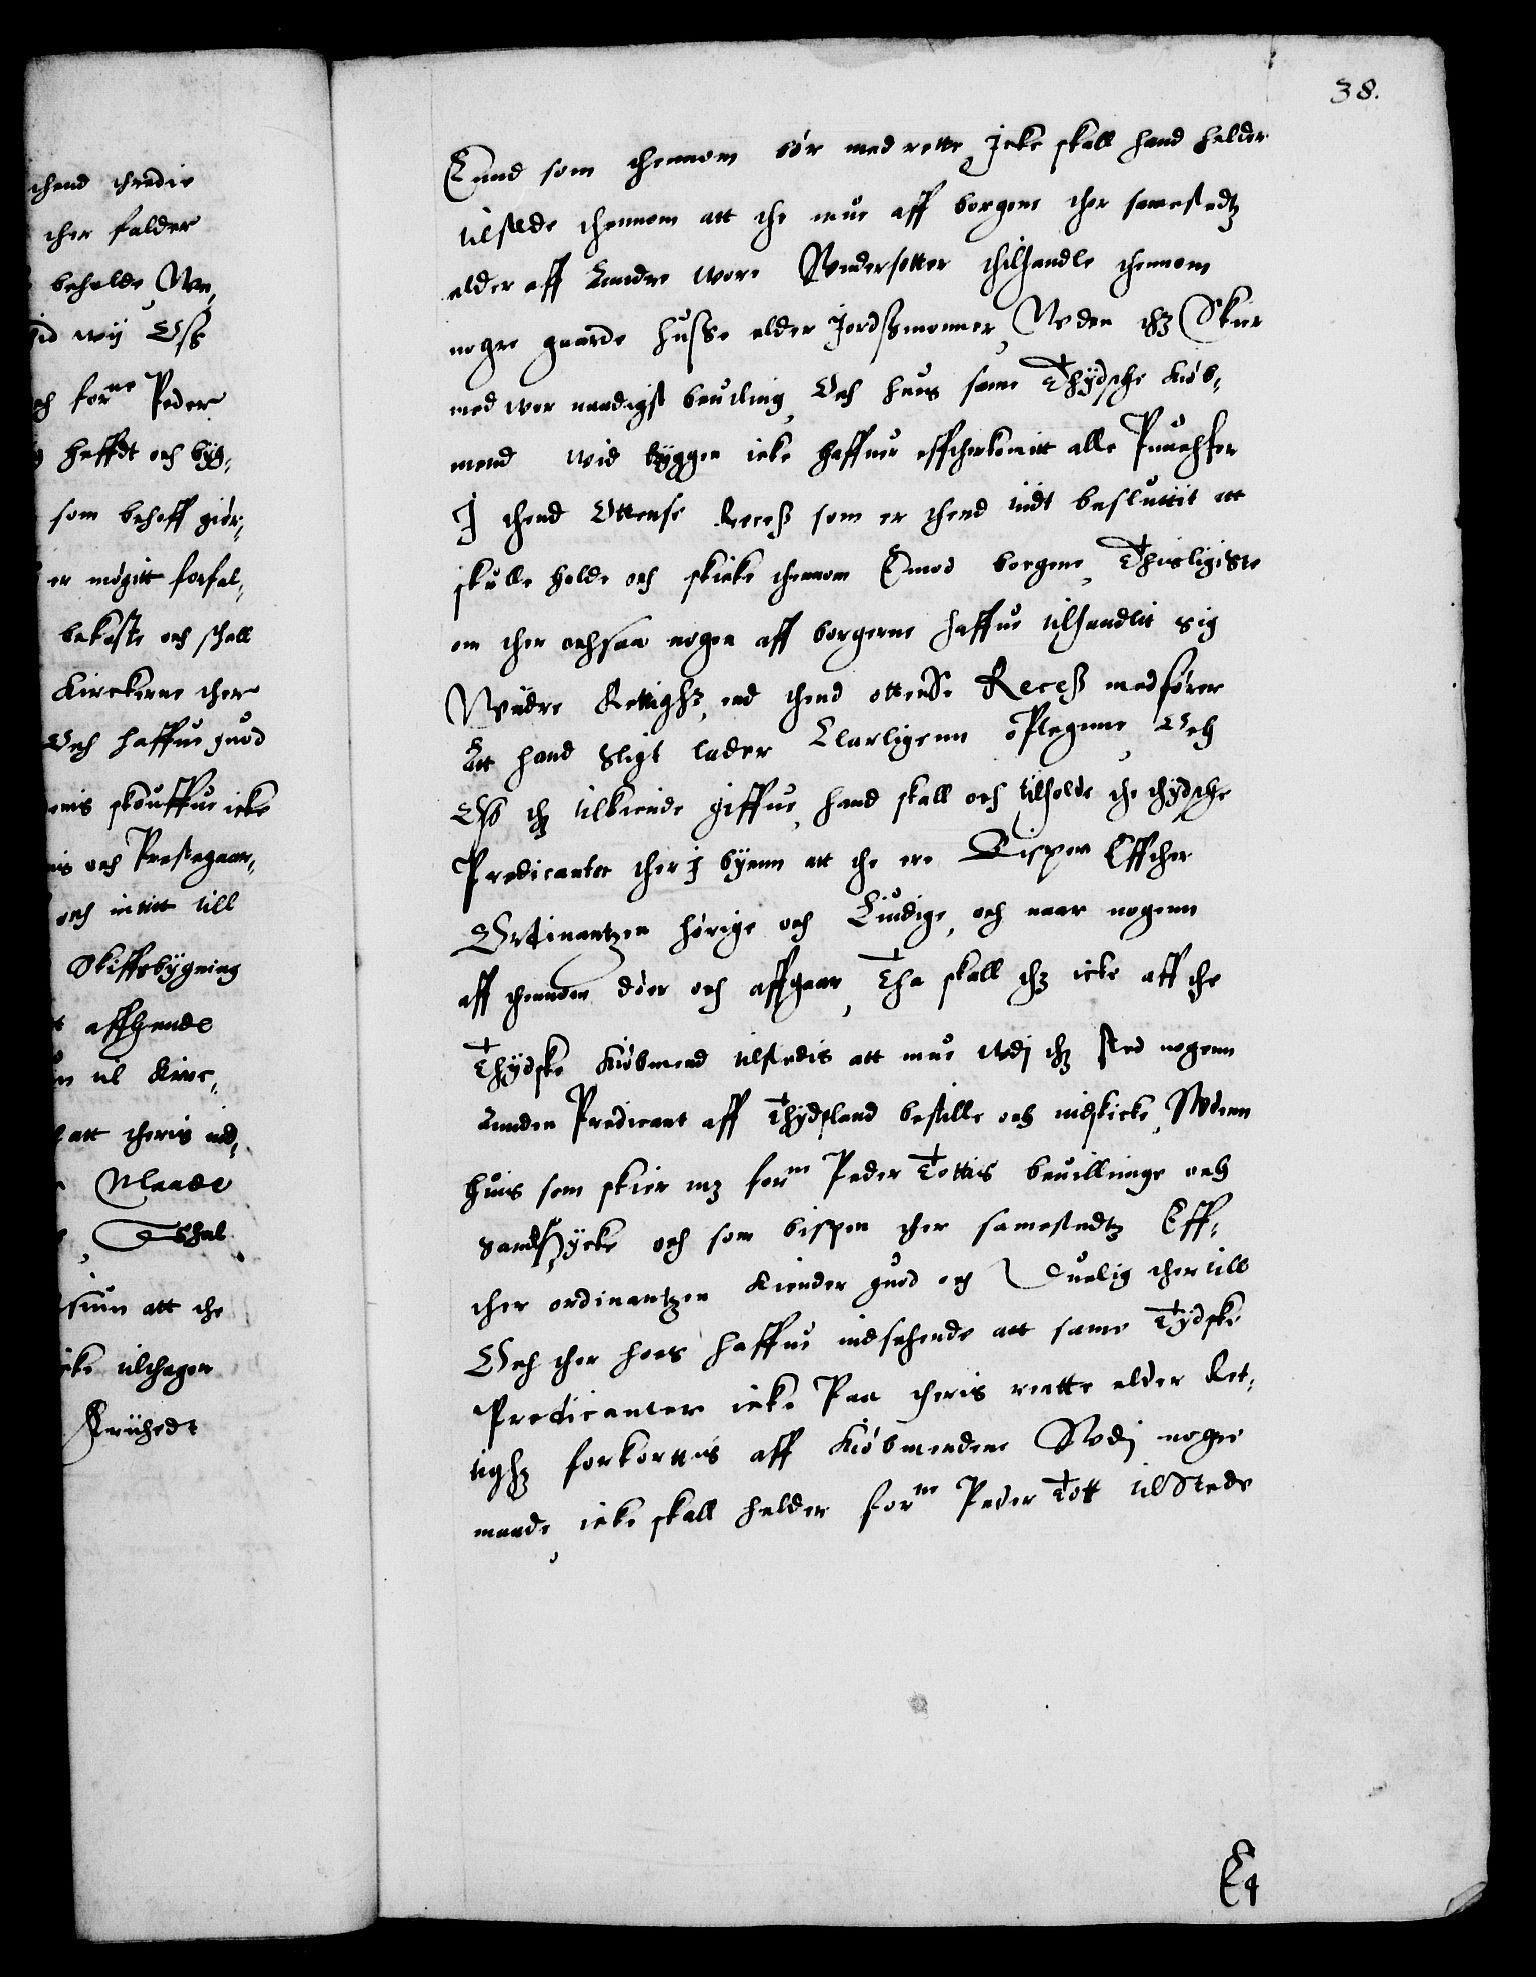 38.
chend thredie
ther falder
beholde, 
wij Oss
forne Peder
hafft och byg-
som behoff giør-
er møgitt forfal-
bekoste och schall
Kirckerne ther
Och haffue guod
skouffue icke
och Prestegaar-
och intitt till
Skiffsbygning
affhende
til Kirc-
att theris ind-
Maade
Schal
att the
icke tilthager
Friihedt
Emod som thennom bør med rette, Icke skall hand helder
tilstede thennom att the mue aff borgere ther samestedtz
elder aff Andre wore Undersotter thilhandle thennom
nogre gaarde husse elder Jordssmonner, Uden thz Skier
med wor naadigst beuilling, Och huis same Thydsche Kiøb-
mend wid bryggen icke haffuer efftherkomitt alle Puncther
I thend Ottense Recess som er thend tiidt besluttit att
skulle holde och skicke thennom Emod borgerne, Thisligiste
om ther ochsaa nogen aff borgerne haffue tilhandlit sig
Widre Rettighz, end thend ottense Recess medfører
Att hand sligt lader Clarligenn opteggnne, Och
Oss thz tilkiende giffue, hand skall och tilholde the thydsche
Predicanter ther I byenn att the ere Bispen Effther
Ordinantzen hørige och Liudige, och naar nogenn
aff thennom døer och affgaar, Tha skall thz icke aff the
Thydske Kiøbmend tilstedis att mue udj thz sted nogenn
Anden Predicant aff Thydsland bestille och indskicke, Udenn
huis som skier mz forne Peder Tottis beuillinge och
samdtycke och som bispen ther samestedtz Eff-
ther ordinantzen kiender guod och Duelig ther till
Och ther hoes haffue indsehende att same Tydske
Predicanter icke Paa theris rentte elder Ret-
tighz forkorttis aff Kiøbmendene Udj nogre
maade, icke skall helder forne Peder Tott tilstede
Et